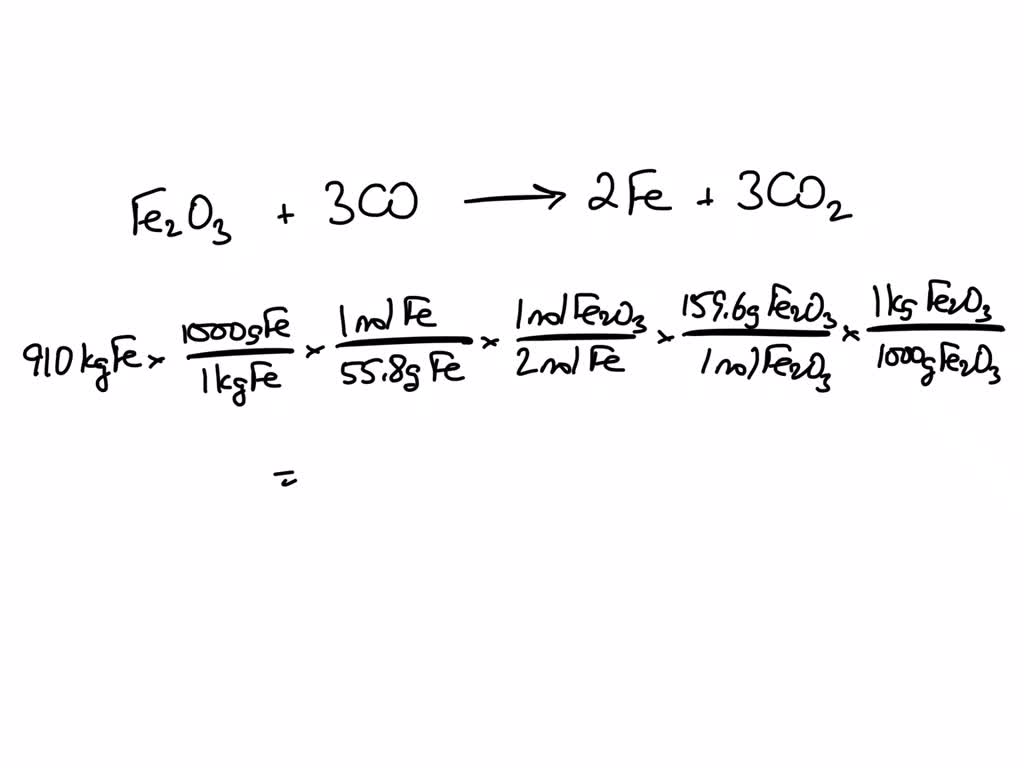 Fe₂O₃ + 3CO ⟶ 2Fe + 3CO₂
910 kg Fe × 1000g Fe / 1 kg Fe × 1 mol Fe / 55.8g Fe × 1 mol Fe₂O₃ / 2 mol Fe × 159.6g Fe₂O₃ / 1 mol Fe₂O₃ × 1 kg Fe₂O₃ / 1000g Fe₂O₃
=